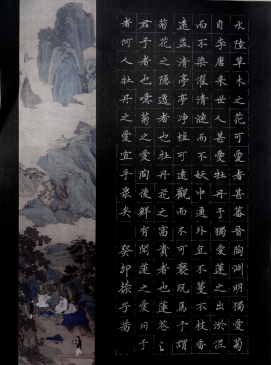 水陸草木之花可愛者甚蕃晉陶淵明獨愛菊
自李唐来世人甚愛牡丹予獨愛蓮之出淤泥
而不染濯清漣而不妖中通外直不蔓不枝香
遠益清亭亭净植可遠觀而不可褻玩焉予謂
菊花之隱逸者也牡丹花之富貴者也蓮花之
君子者也噫菊之愛陶後鮮有聞蓮之愛同予
者何人牡丹之愛宜乎衆矣 癸卯徐子